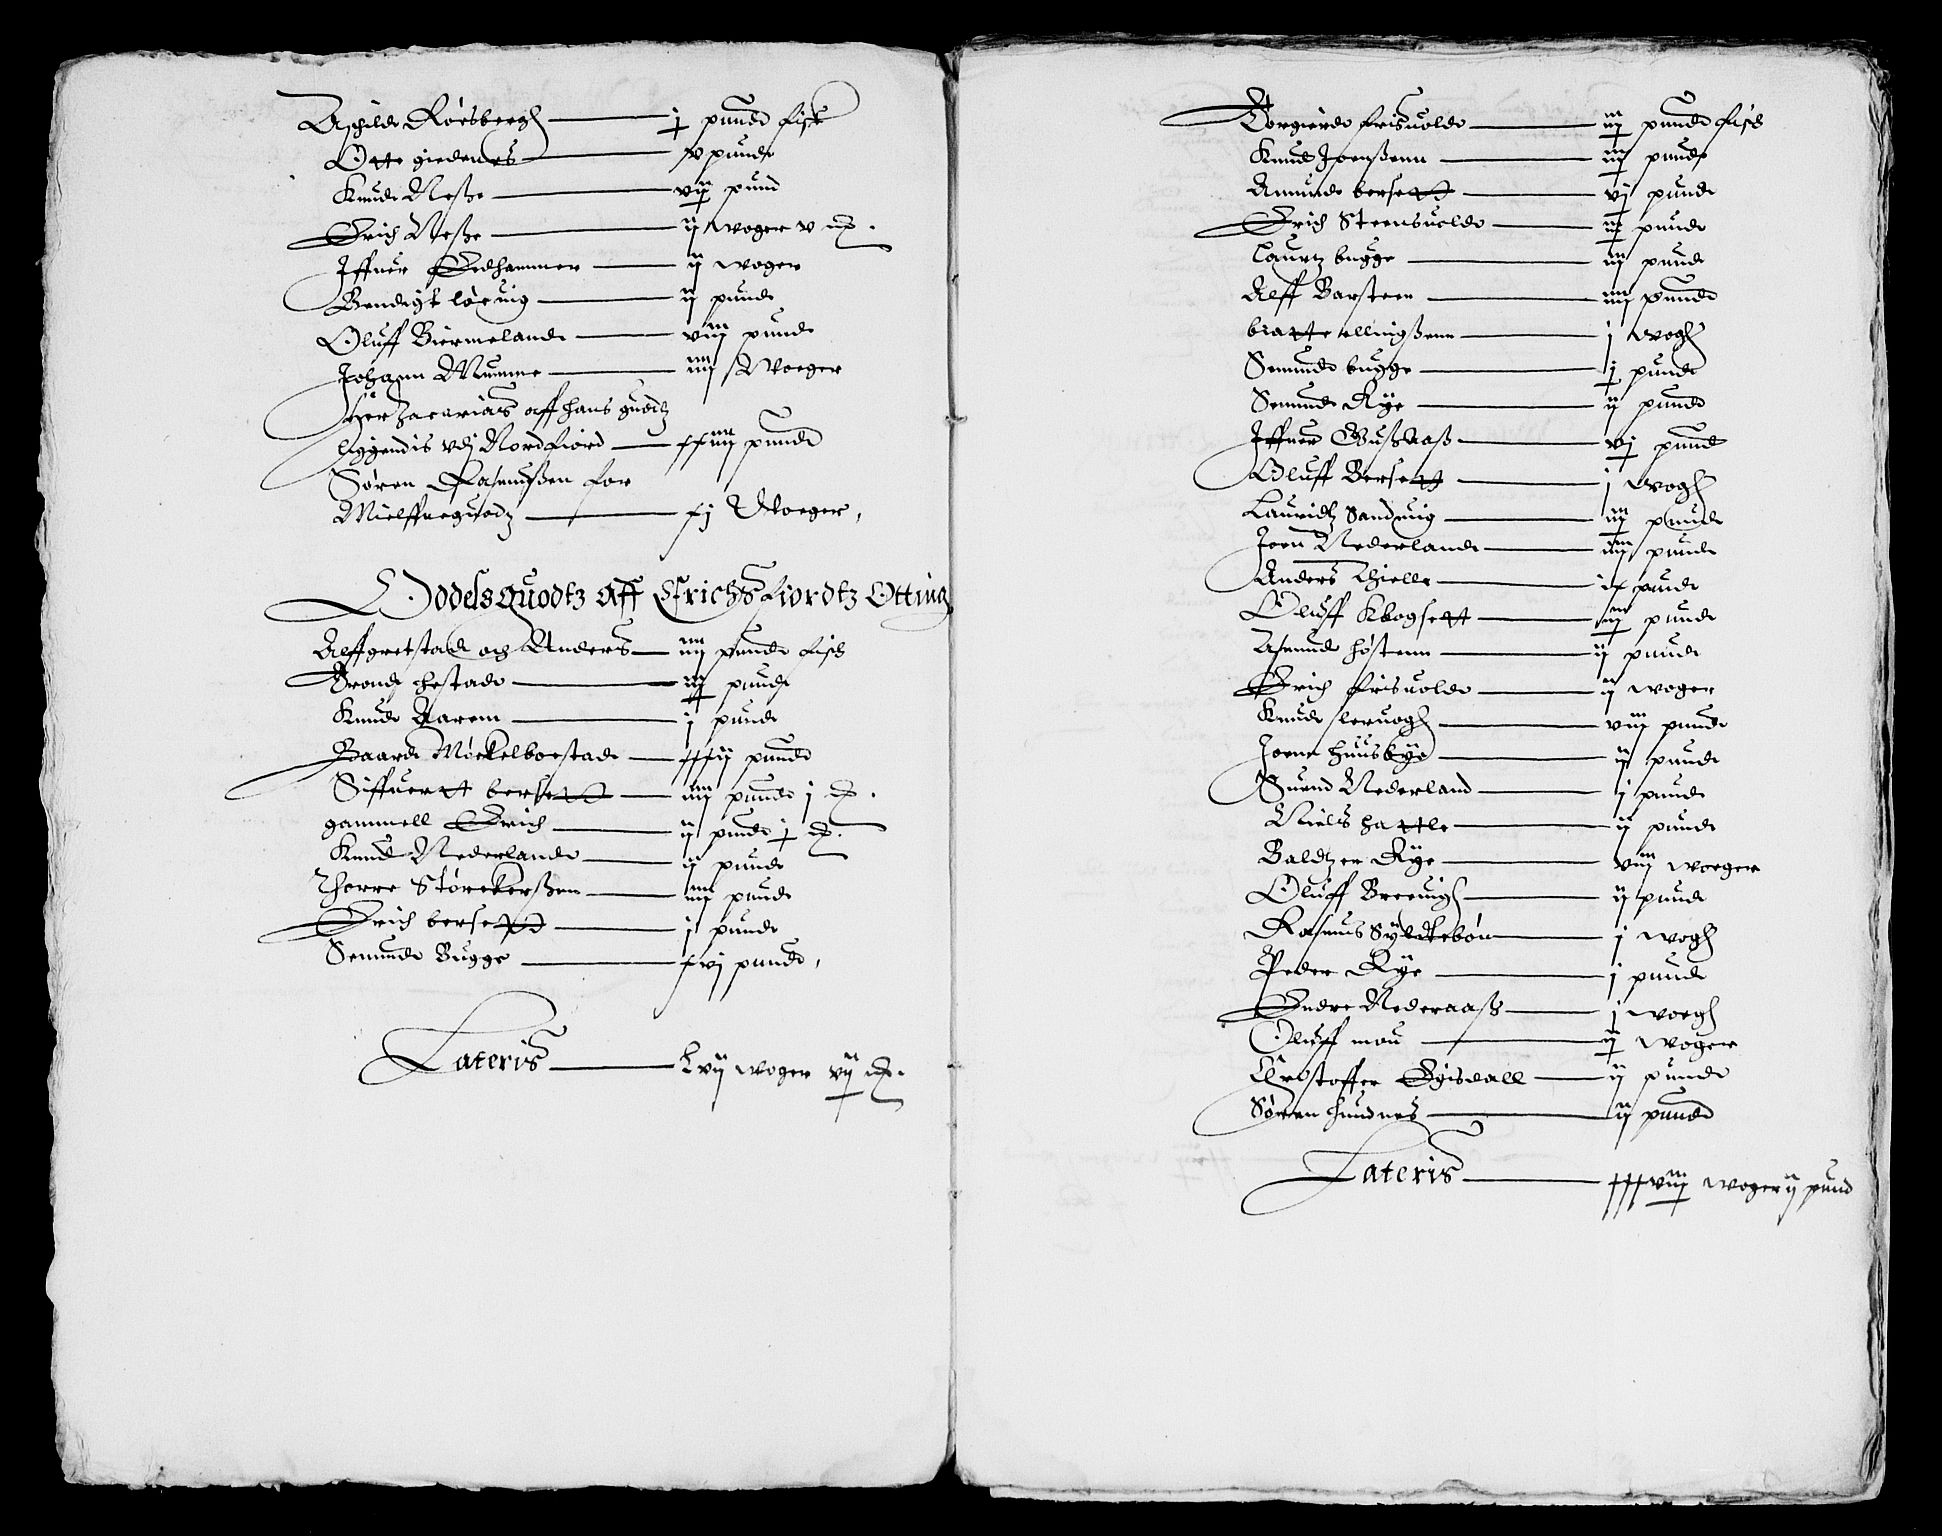 Aschilde Røesbergh — j pundt fisk
Otte giedenes — xv punde
Knude Neße — vij pund
Erich Neße — ij woger v
Iffuer Eedhammer — ij woger
Bendigt løeuig — ij punde
Oluff Biermelande — viij punde
Johann Mumme — iiij Woeger
Her Zacarias aff hans guodtz
liggendis vdj Nordfiord — xxiiij punde
Søren Rasmußen for
Mielffueguodtz — xj Woeger,
Oddelsguodtz aff Erichsfiordtz Otting
Alffgretstad og Anders — iiij punde fisk
Trond hestade — iij punde
Knude Aarem — j punde
Baarde Møckelboestade — xxxij pundt
Siffuertt bersett — iiij punde j
gammell Erich — ij punde j
Knud Nederlande — ij punde
Thorre Størckerßen — iiij punde
Erich bersett — j punde
Semunde Bugge — xvj punde,
Lateris — Lvij woger vij
Torgierde frisuolde — iij punde fisk
Knud Joenßenn — iij punde
Amunde bersett — vj punde
Erich Steensuolde — iij punde
Lauritz bugge — iij punde
Alff Barsteen — iiij pundt
bratte ellingßenn — j wogh
Semunde bugge — j punde
Semunde Rye — ij pundt
Iffuer Gußaaß — vj pund
Oluff Bersett — j wogh
Lauridtz Sanduig — iij punde
Joen Nederlande — iiij punde
Anders Thielle — ix punde
Oluff Kbogsett — iij punde
Asmund høstenn — ij punde
Erich frisuolde — ij woger
Knude leruogh — viij punde
Joenn Huusbye — ij punde
Suend Nederland — j punde
Niels hattle — ij punde
Baldtzer Rye — viij woeger
Oluff Breeuigh — ij punde
Rasmus Syltebøn — j wogh
Peder Rye — j punde
Endre Nederaaß — j woegh
Oluff mou — ij woger
Christoffer Egisdall — ij punde
Søren hundnes — ij pundt
Lateris — xxxviij woger ij pund